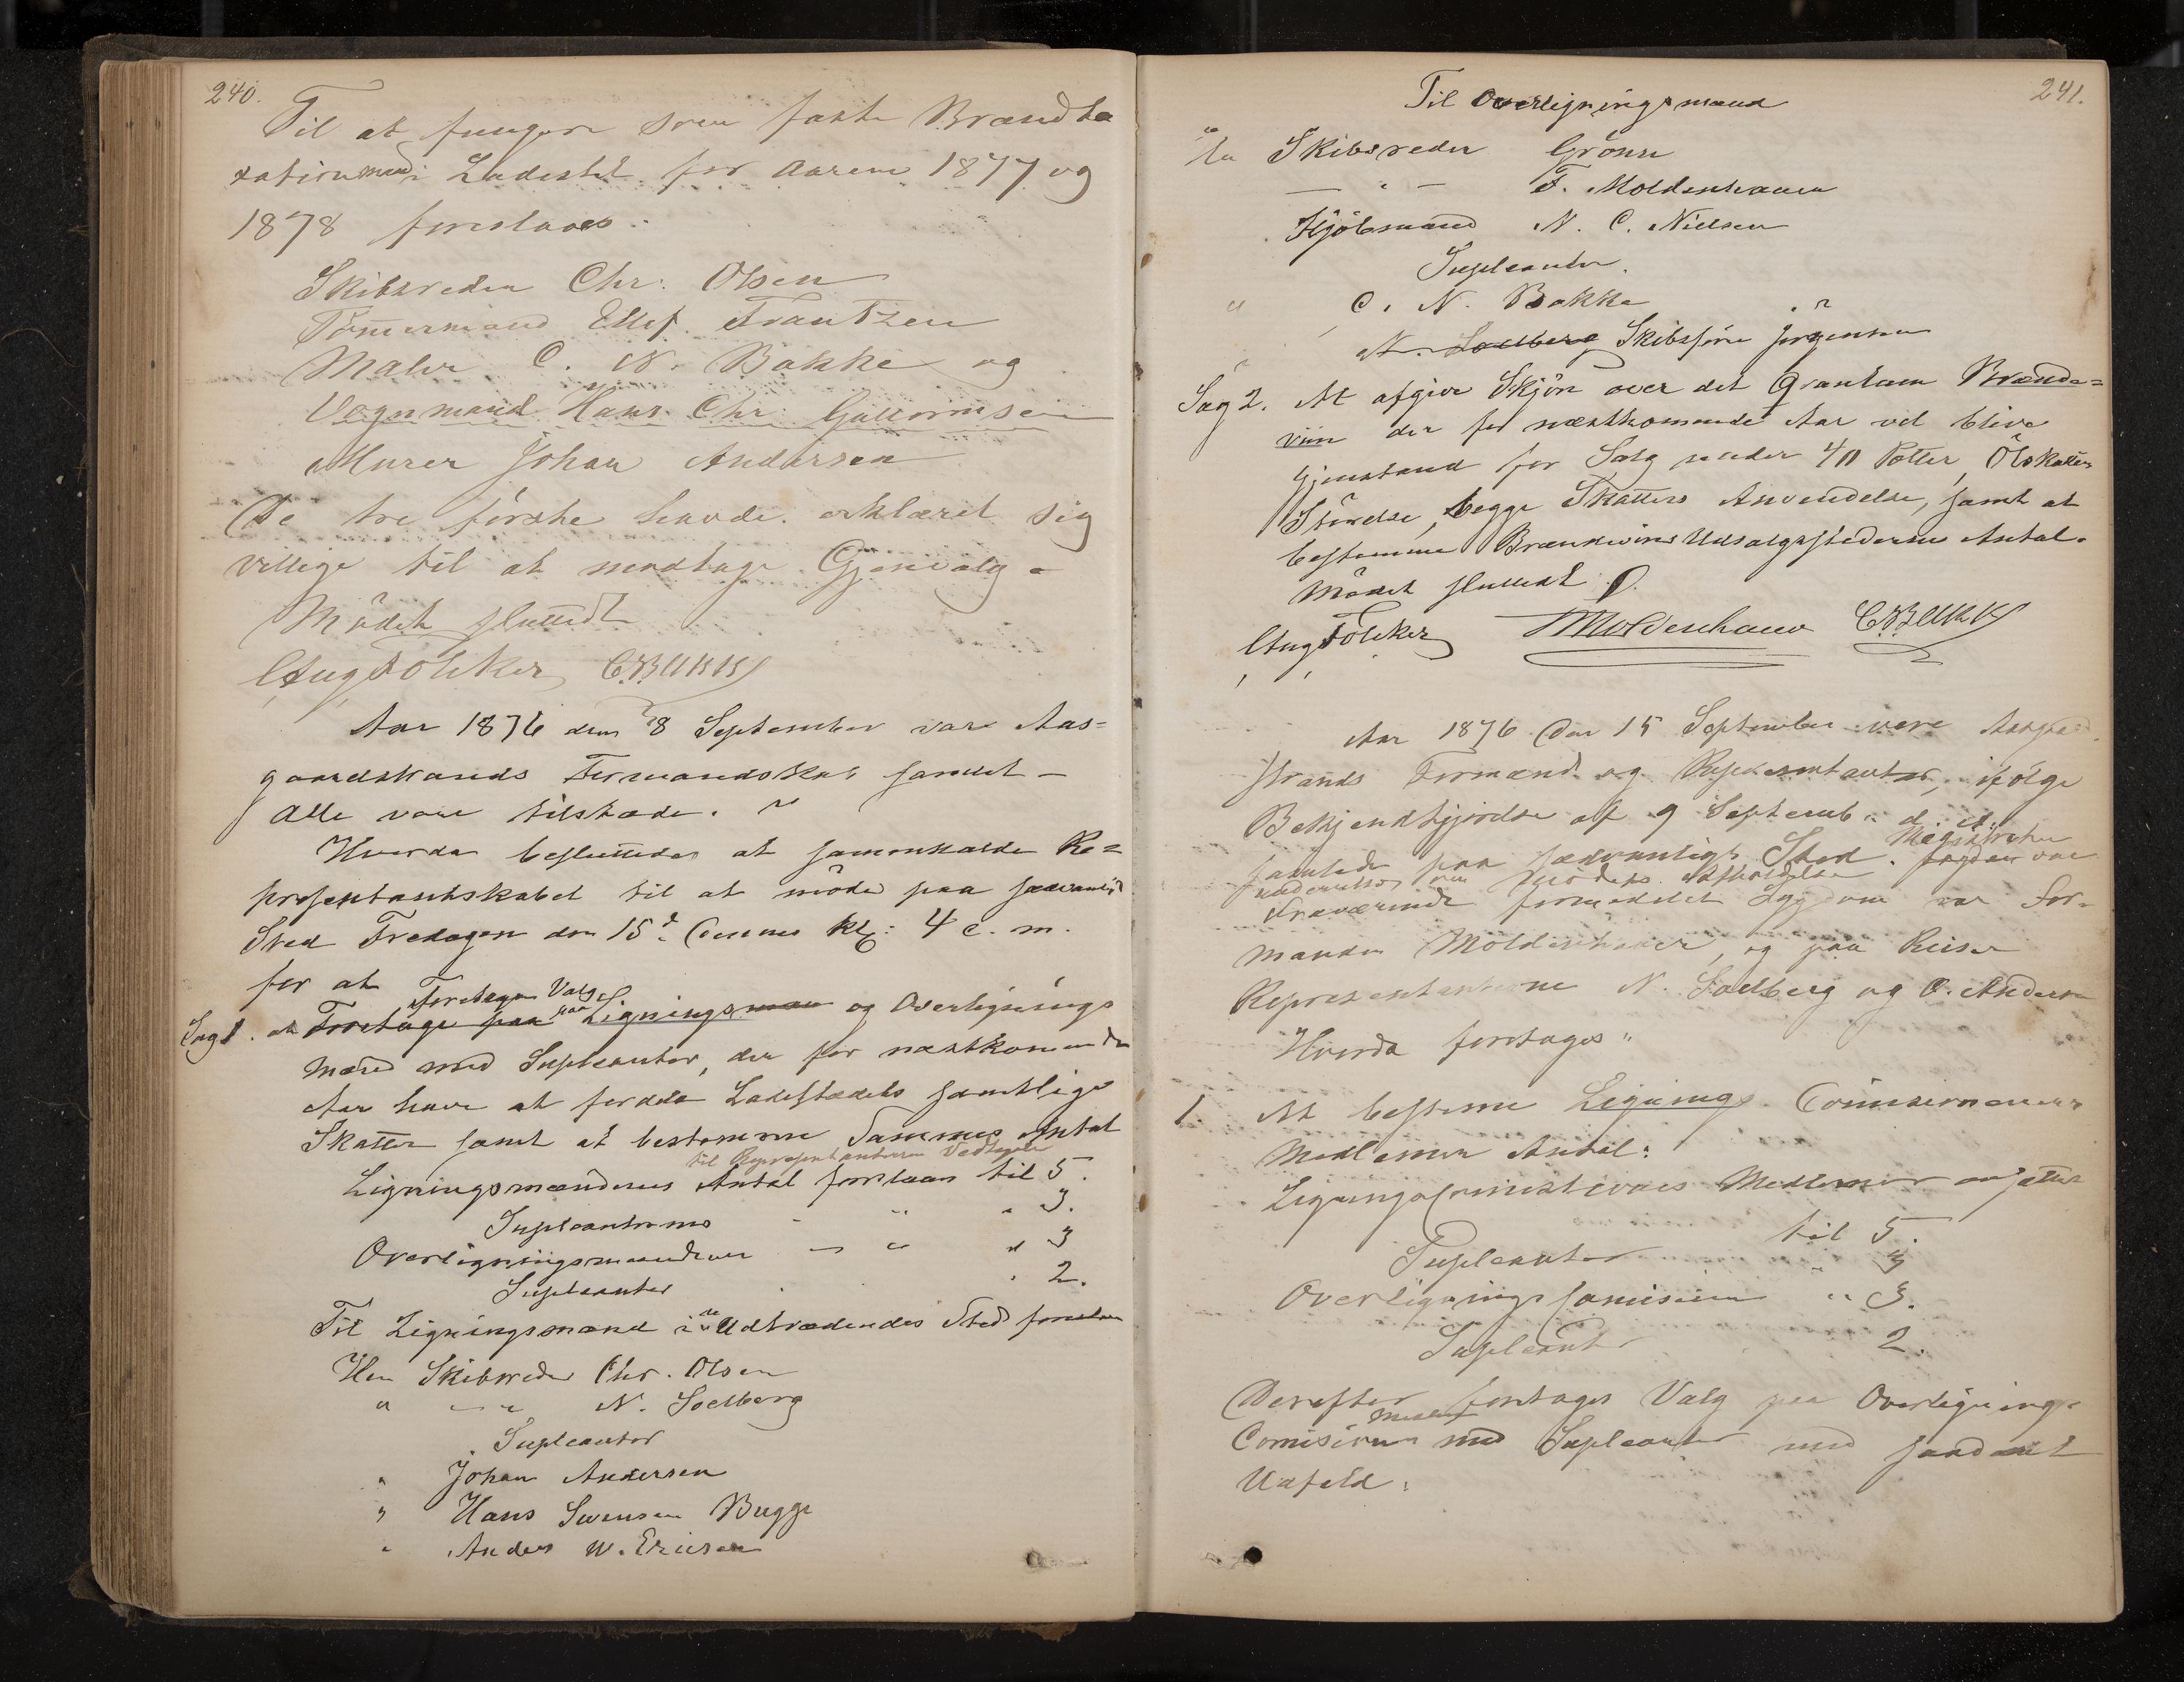 240.
Til at fungere som faste Brandta
xationsmænd i Ladestedet for Aarene 1877 og
1878 foreslaaes:
Skibsreder Chr: Olsen
Tömmermand Ellef Frantzen
Maler C. N. Bakke og
Vognmand Hans Chr: Guttormsen
Murer Johan Andersen
De tre förste havde erklæret sig
villige til at modtage Gjenvalg -
Mödet sluttedt
Aug Fölcker
Aar 1876 den 8 September vare Aas-
gaardstrands Formandskab samlet -
Alle vare tilstæde.
Hvorda besluttedes at sammenkalde Re-
presentantskabet til at möde paa sædvanlig
Sted Fredagen den 15d. Dennes Kl: 4 e. m.
for at
Foretage Valg
Sag 1. at Foretage paa paa Lignings og Overlignings
mænd med Supleanter, der for næstkommende
Aar have at fordele Ladestædets samtlige
Skatter samt at bestemme Sammes Antal
til Representanternes Vedtagelse
Ligningsmændenes Antal foreslaaes til 5.
Supleanternes " 3.
Overligningsmændenes " " " 3
Supleanter 2.
Til Ligningsmænd i de Udtrædendes Sted foreslaaes
Herr Skibsreder Chr. Olsen
" - " - N. Soelberg
Supleanter
" Johan Andersen
" Hans Svensen Bugge
" Anders W. Ericsen
241.
Til Overligningsmænd
Skibsreder Grönn
- " - F. Moldenhauer
Kjöbmand N. C. Nielsen
Supleanter.
" C. N. Bakke
N. Soelberg Skibsförer Jörgensen
Sag 2. At afgive Skjön over det Qvantum Brænde-
viin der for næstkommende Aar vil blive
Gjenstand for Salg under 40 Potter, Ölskattens
Störrelse, begge Skatters Anvendelse, samt at
bestemme Brændeviins Udsalgsstedernes Antal.
Mödet sluttedt
Aug Fölcker Moldenhauer
Aar 1876 Den 15 September vare Aasgaard
strands Formænd og Representanter, ifölge
Bekjendtgjörelse af 9 Septemb: d. A.
Magistraten
samlede paa sædvanligt Sted. Fogden var
underrettet om Mödets Afholdelse
Fraværende formedelst Sygdom var For-
manden Moldenhauer, og paa Reiser
Representanterne N. Soelberg og O. Andersen
Hvorda foretages "
1. At bestemme Lignings Commissionens
Medlemmers Antal:
Ligningscommissionens Medlemmer ansættes
til 5.
Supleanter " 3
Overligningscomisionen " 3.
Supleanter 2.
Derefter foretages Valg paa Overlignings-
Comisionens Medlem med Supleanter med saadant
Udfald: